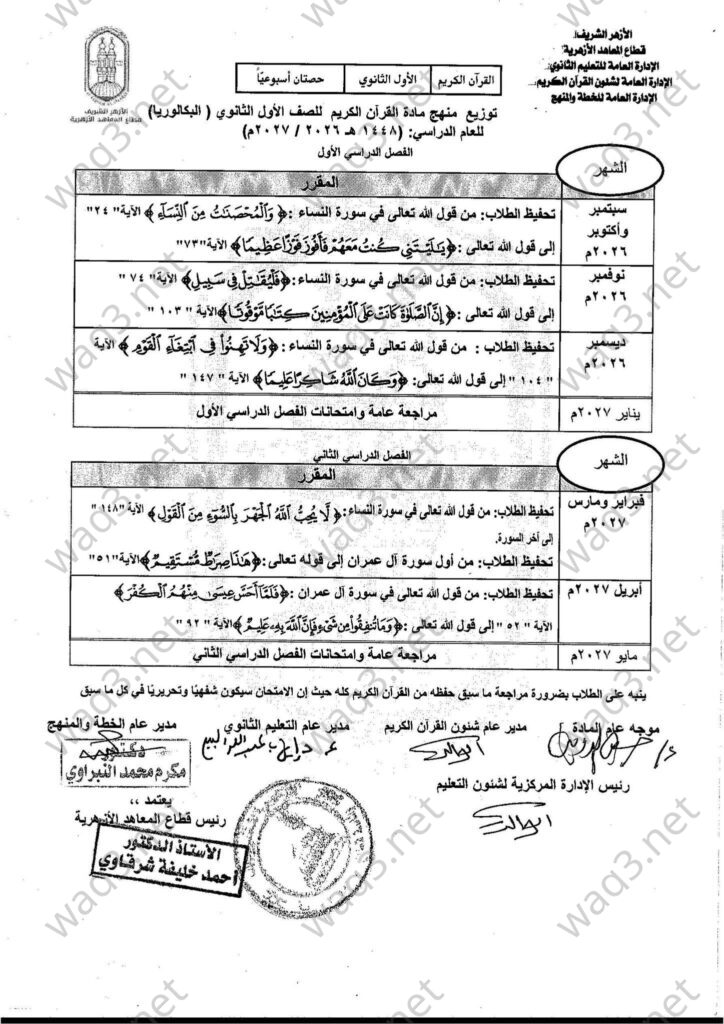 الأزهر الشريف
قطاع المعاهد الأزهرية
الإدارة العامة للتعليم الثانوي
الإدارة العامة لشئون القرآن الكريم
الإدارة العامة للخطة والمنهج
الأزهر الشريف
قطاع المعاهد الأزهرية
القرآن الكريم | الأول الثانوي | حصتان أسبوعيًا
توزيع منهج مادة القرآن الكريم للصف الأول الثانوي ( البكالوريا)
للعام الدراسي: (١٤٤٨ هـ ٢٠٢٦ / ٢٠٢٧م)
الفصل الدراسي الأول
الشهر
المقرر
سبتمبر
وأكتوبر
٢٠٢٦م
تحفيظ الطلاب: من قول الله تعالى في سورة النساء :﴿ وَالْمُحْصَنَاتُ مِنَ النِّسَاءِ ﴾ الآية" ٢٤"
إلى قول الله تعالى :﴿يَا لَيْتَنِي كُنتُ مَعَهُمْ فَأَفُوزَ فَوْزًا عَظِيمًا﴾ الآية"٧٣"
نوفمبر
٢٠٢٦م
تحفيظ الطلاب: من قول الله تعالى في سورة النساء :﴿فَلْيُقَاتِلْ فِي سَبِيلِ﴾ الآية " ٧٤ "
إلى قول الله تعالى :﴿ إِنَّ الصَّلَاةَ كَانَتْ عَلَى الْمُؤْمِنِينَ كِتَابًا مَّوْقُوتًا﴾ الآية " ١٠٣ "
ديسمبر
٢٠٢٦م
تحفيظ الطلاب : من قول الله تعالى في سورة النساء :﴿ وَلَا تَهِنُوا فِي ابْتِغَاءِ الْقَوْمِ ﴾ الآية
" ١٠٤ " إلى قول الله تعالى: ﴿ وَكَانَ اللَّهُ شَاكِرًا عَلِيمًا﴾ الآية " ١٤٧ "
يناير ٢٠٢٧م
مراجعة عامة وامتحانات الفصل الدراسي الأول
الفصل الدراسي الثاني
الشهر
المقرر
فبراير ومارس
٢٠٢٧م
تحفيظ الطلاب: من قول الله تعالى في سورة النساء: ﴿ لَا يُحِبُّ اللَّهُ الْجَهْرَ بِالسُّوءِ مِنَ الْقَوْلِ ﴾ الآية "١٤٨"
إلى آخر السورة.
تحفيظ الطلاب: من أول سورة آل عمران إلى قوله تعالى:﴿هَٰذَا صِرَاطٌ مُّسْتَقِيمٌ﴾ الآية"٥١"
أبريل ٢٠٢٧م
تحفيظ الطلاب: من قول الله تعالى في سورة آل عمران :﴿فَلَمَّا أَحَسَّ عِيسَىٰ مِنْهُمُ الْكُفْرَ﴾
الآية " ٥٢ " إلى قول الله تعالى :﴿ وَمَا تُنفِقُوا مِن شَيْءٍ فَإِنَّ اللَّهَ بِهِ عَلِيمٌ﴾ الآية " ٩٢ "
مايو ٢٠٢٧م
مراجعة عامة وامتحانات الفصل الدراسي الثاني
ينبه على الطلاب بضرورة مراجعة ما سبق حفظه من القرآن الكريم كله حيث إن الامتحان سيكون شفهيًا وتحريريًا في كل ما سبق
موجه عام المادة
مدير عام شئون القرآن الكريم
مدير عام التعليم الثانوي
مدير عام الخطة والمنهج
دكتور
مكرم محمد النبراوي
رئيس الإدارة المركزية لشئون التعليم
يعتمد ،،
رئيس قطاع المعاهد الأزهرية
الأستاذ الدكتور
أحمد خليفة شرقاوي
waq3.net